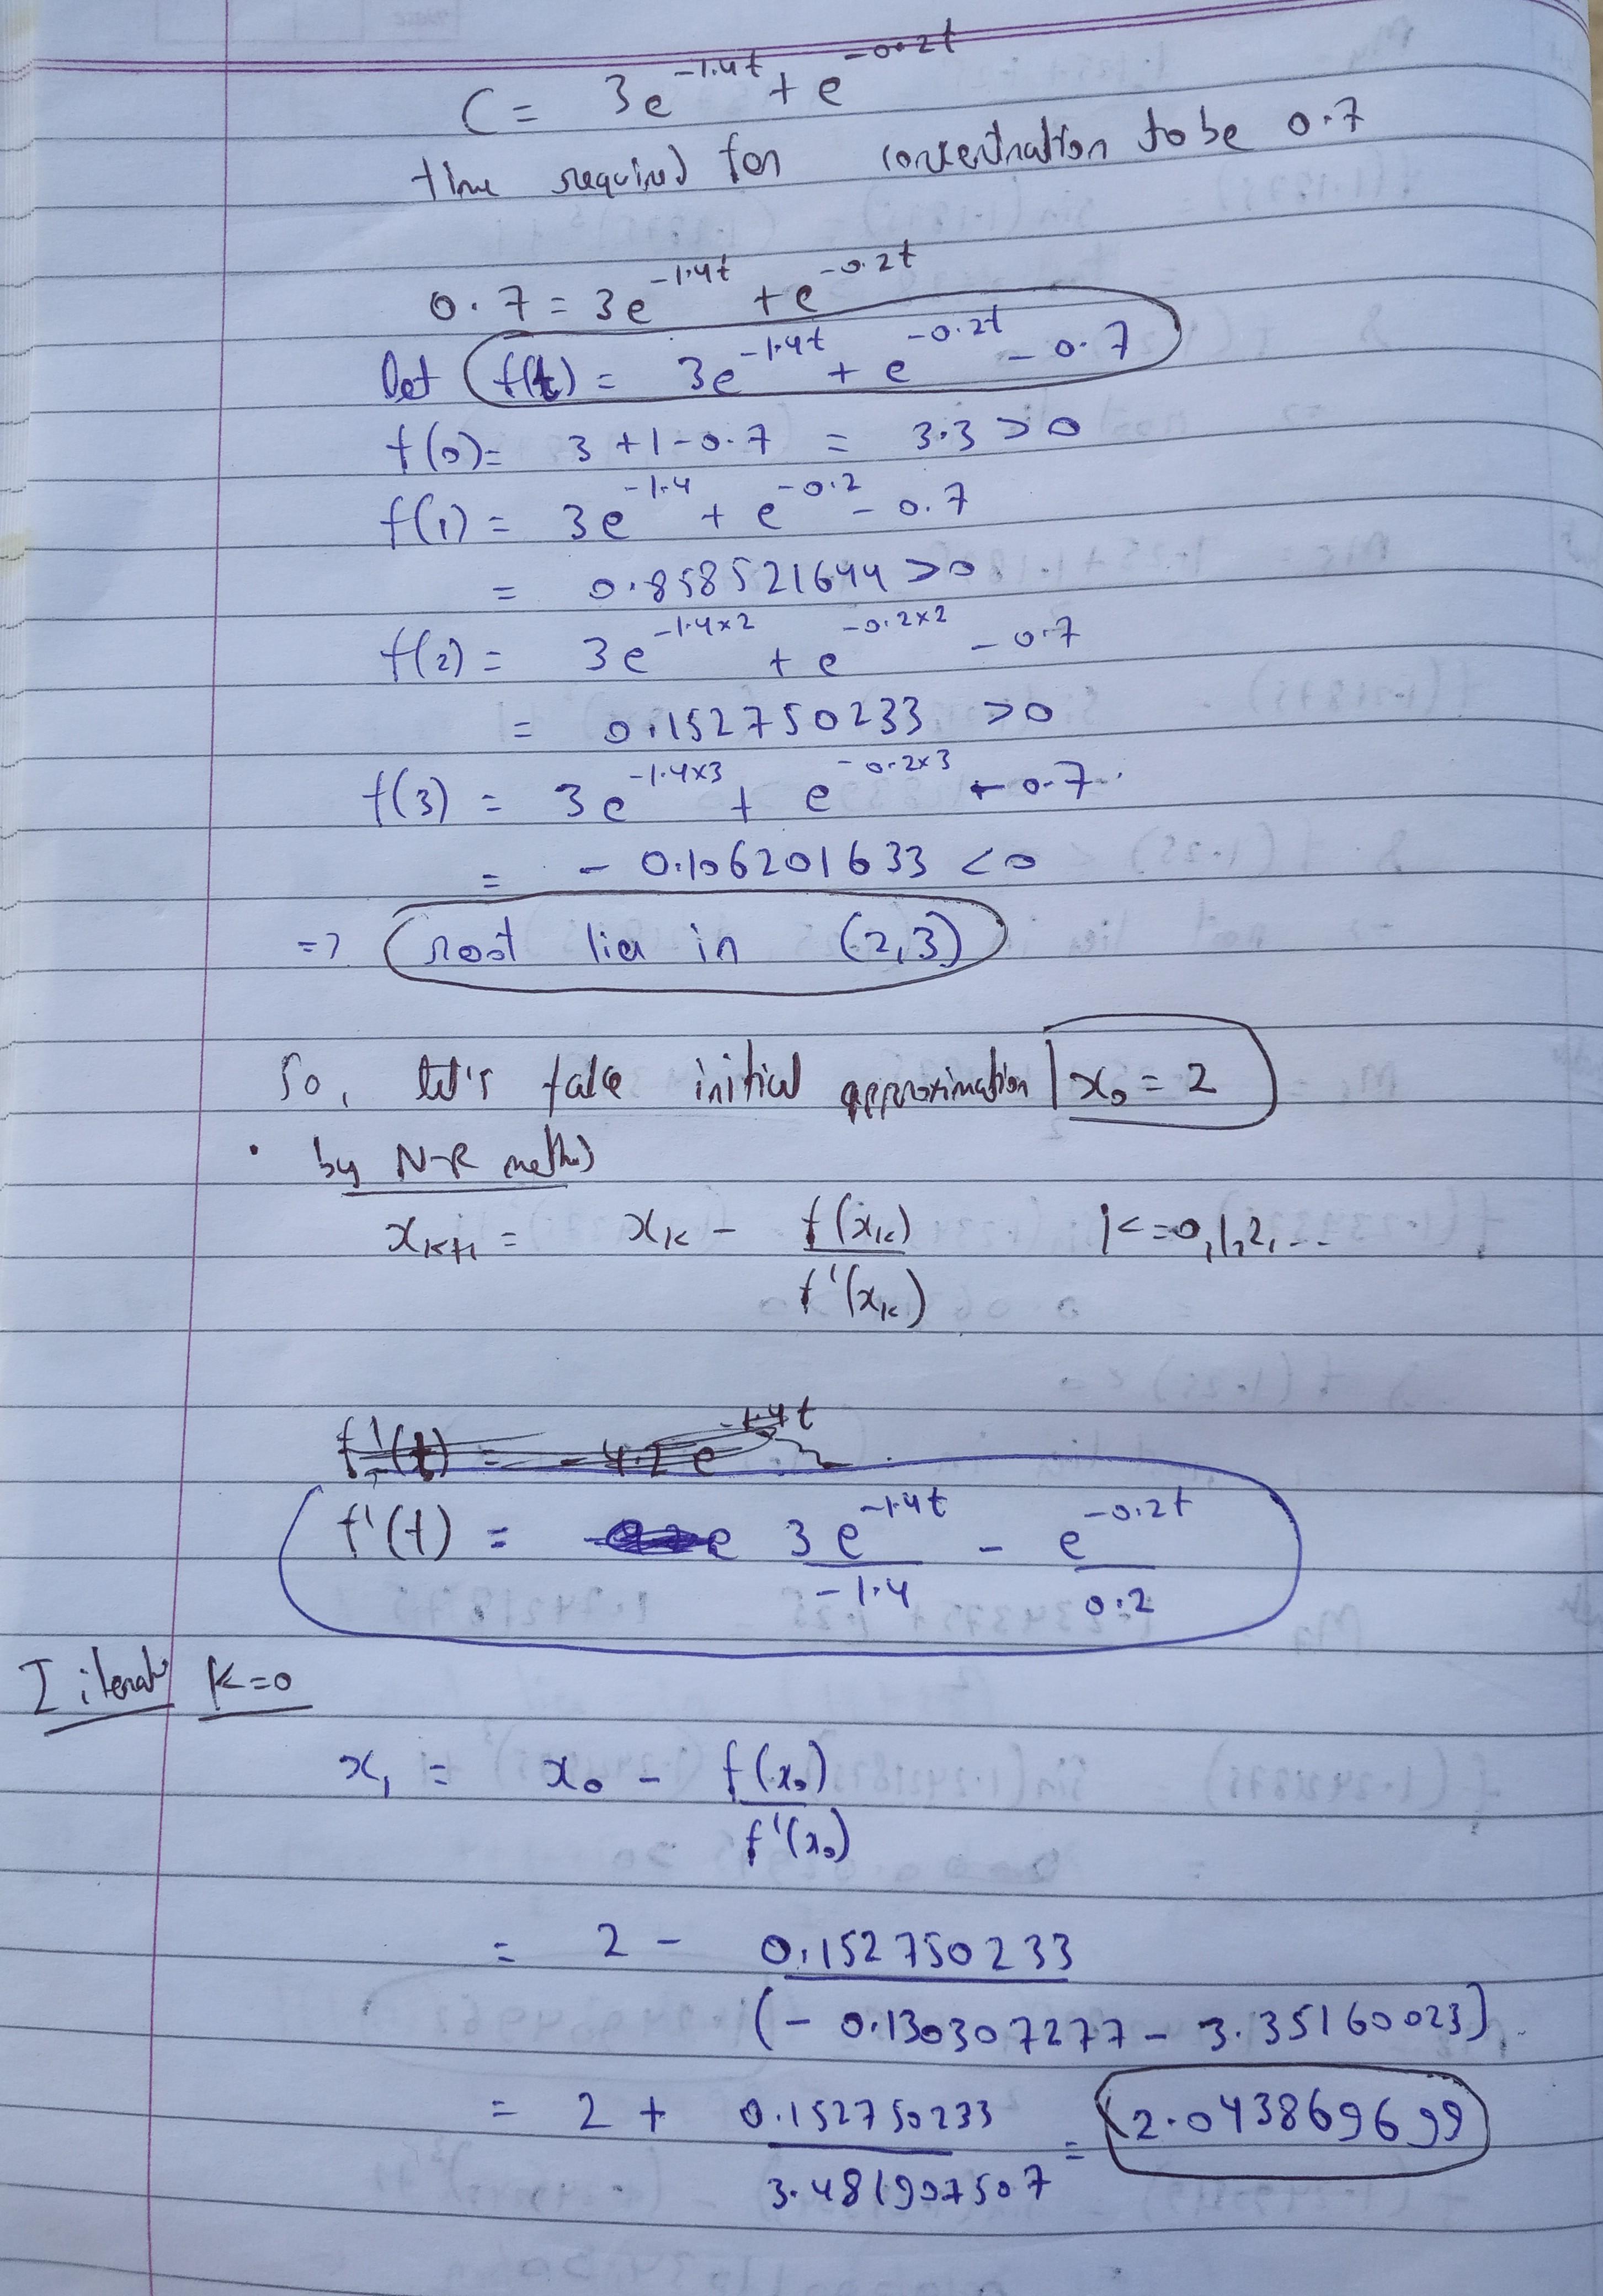 C = 3e^-1.4t + e^-0.2t
time required for concentration to be 0.7
0.7 = 3e^-1.4t + e^-0.2t
Let f(t) = 3e^-1.4t + e^-0.2t - 0.7
f(0) = 3 + 1 - 0.7 = 3.3 > 0
f(1) = 3e^-1.4 + e^-0.2 - 0.7
= 0.858521644 > 0
f(2) = 3e^-1.4×2 + e^-0.2×2 - 0.7
= 0.152750233 > 0
f(3) = 3e^-1.4×3 + e^-0.2×3 - 0.7
= - 0.106201633 < 0
=> root lies in (2,3)
So, let's take initial approximation x₀ = 2
• by N-R method
xₖ₊₁ = xₖ - f(xₖ)/f'(xₖ) K = 0,1,2,...
f'(t) = -4.2e^-1.4t
f'(t) = 3e^-1.4t/-1.4 - e^-0.2t/0.2
I iterat K=0
x₁ = x₀ - f(x₀)/f'(x₀)
= 2 - 0.152750233/(- 0.130307277 - 3.35160023)
= 2 + 0.152750233/3.481907507 = 2.043869699